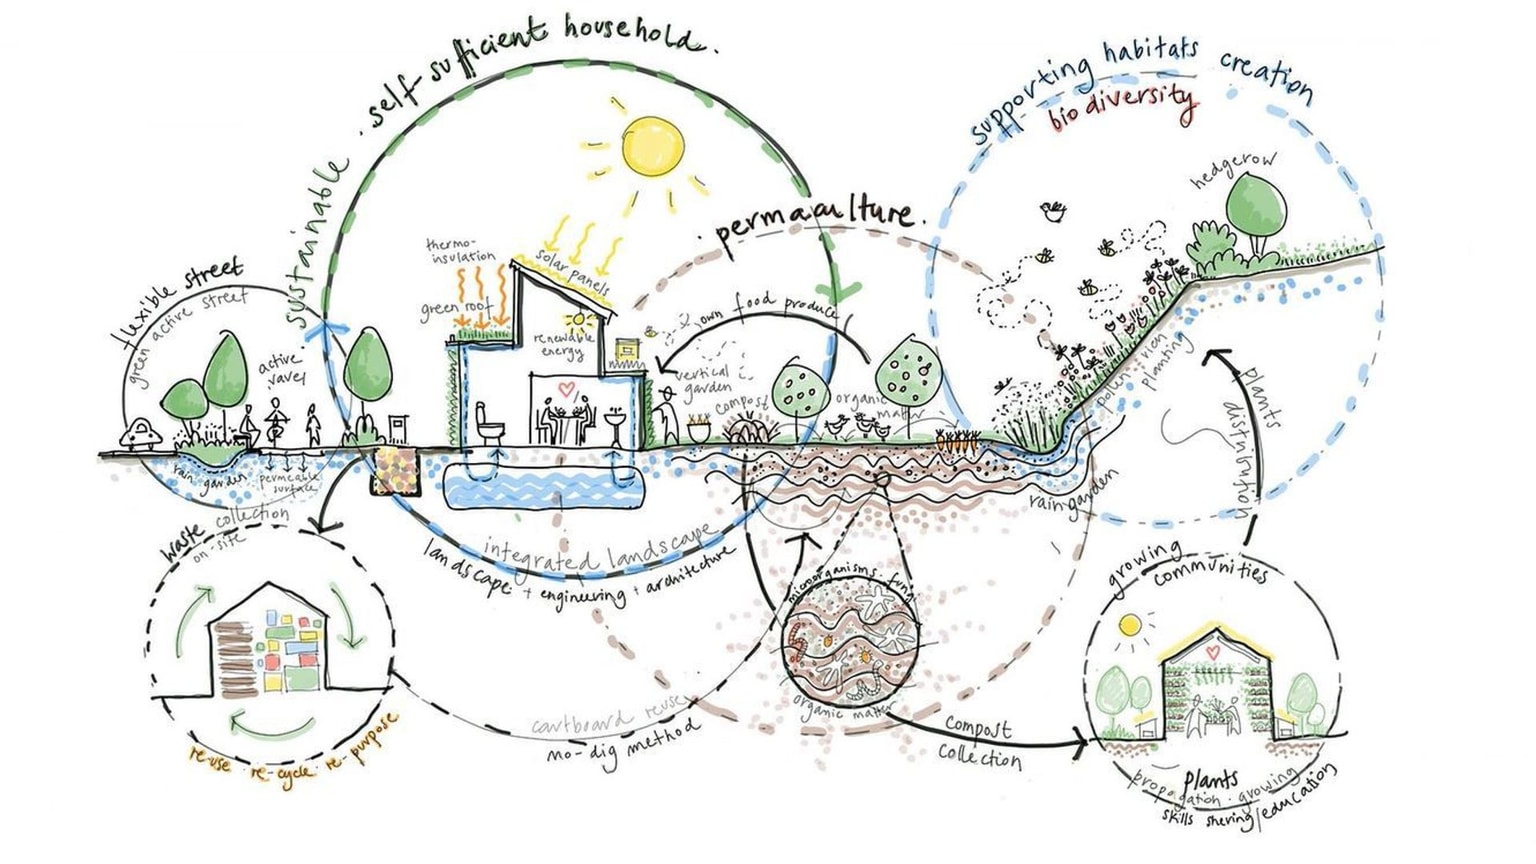 sustainable . self-sufficient household .
supporting habitats creation
bio diversity
hedgerow
. permaculture .
thermo-
insulation
solar panels
green roof
renewable
energy
own food produce
flexible street
green active street
active
travel
vertical
garden
compost
organic
matter
pollen-rich
planting
plants
distribution
rain garden
permeable
surface
rain garden
waste collection
on-site
integrated landscape
landscape + engineering + architecture
microorganisms . fungi
organic matter
growing
communities
cartboard reuse
no-dig method
compost
collection
re-use . re-cycle . re-purpose
plants
propagation . growing
skills shering/education